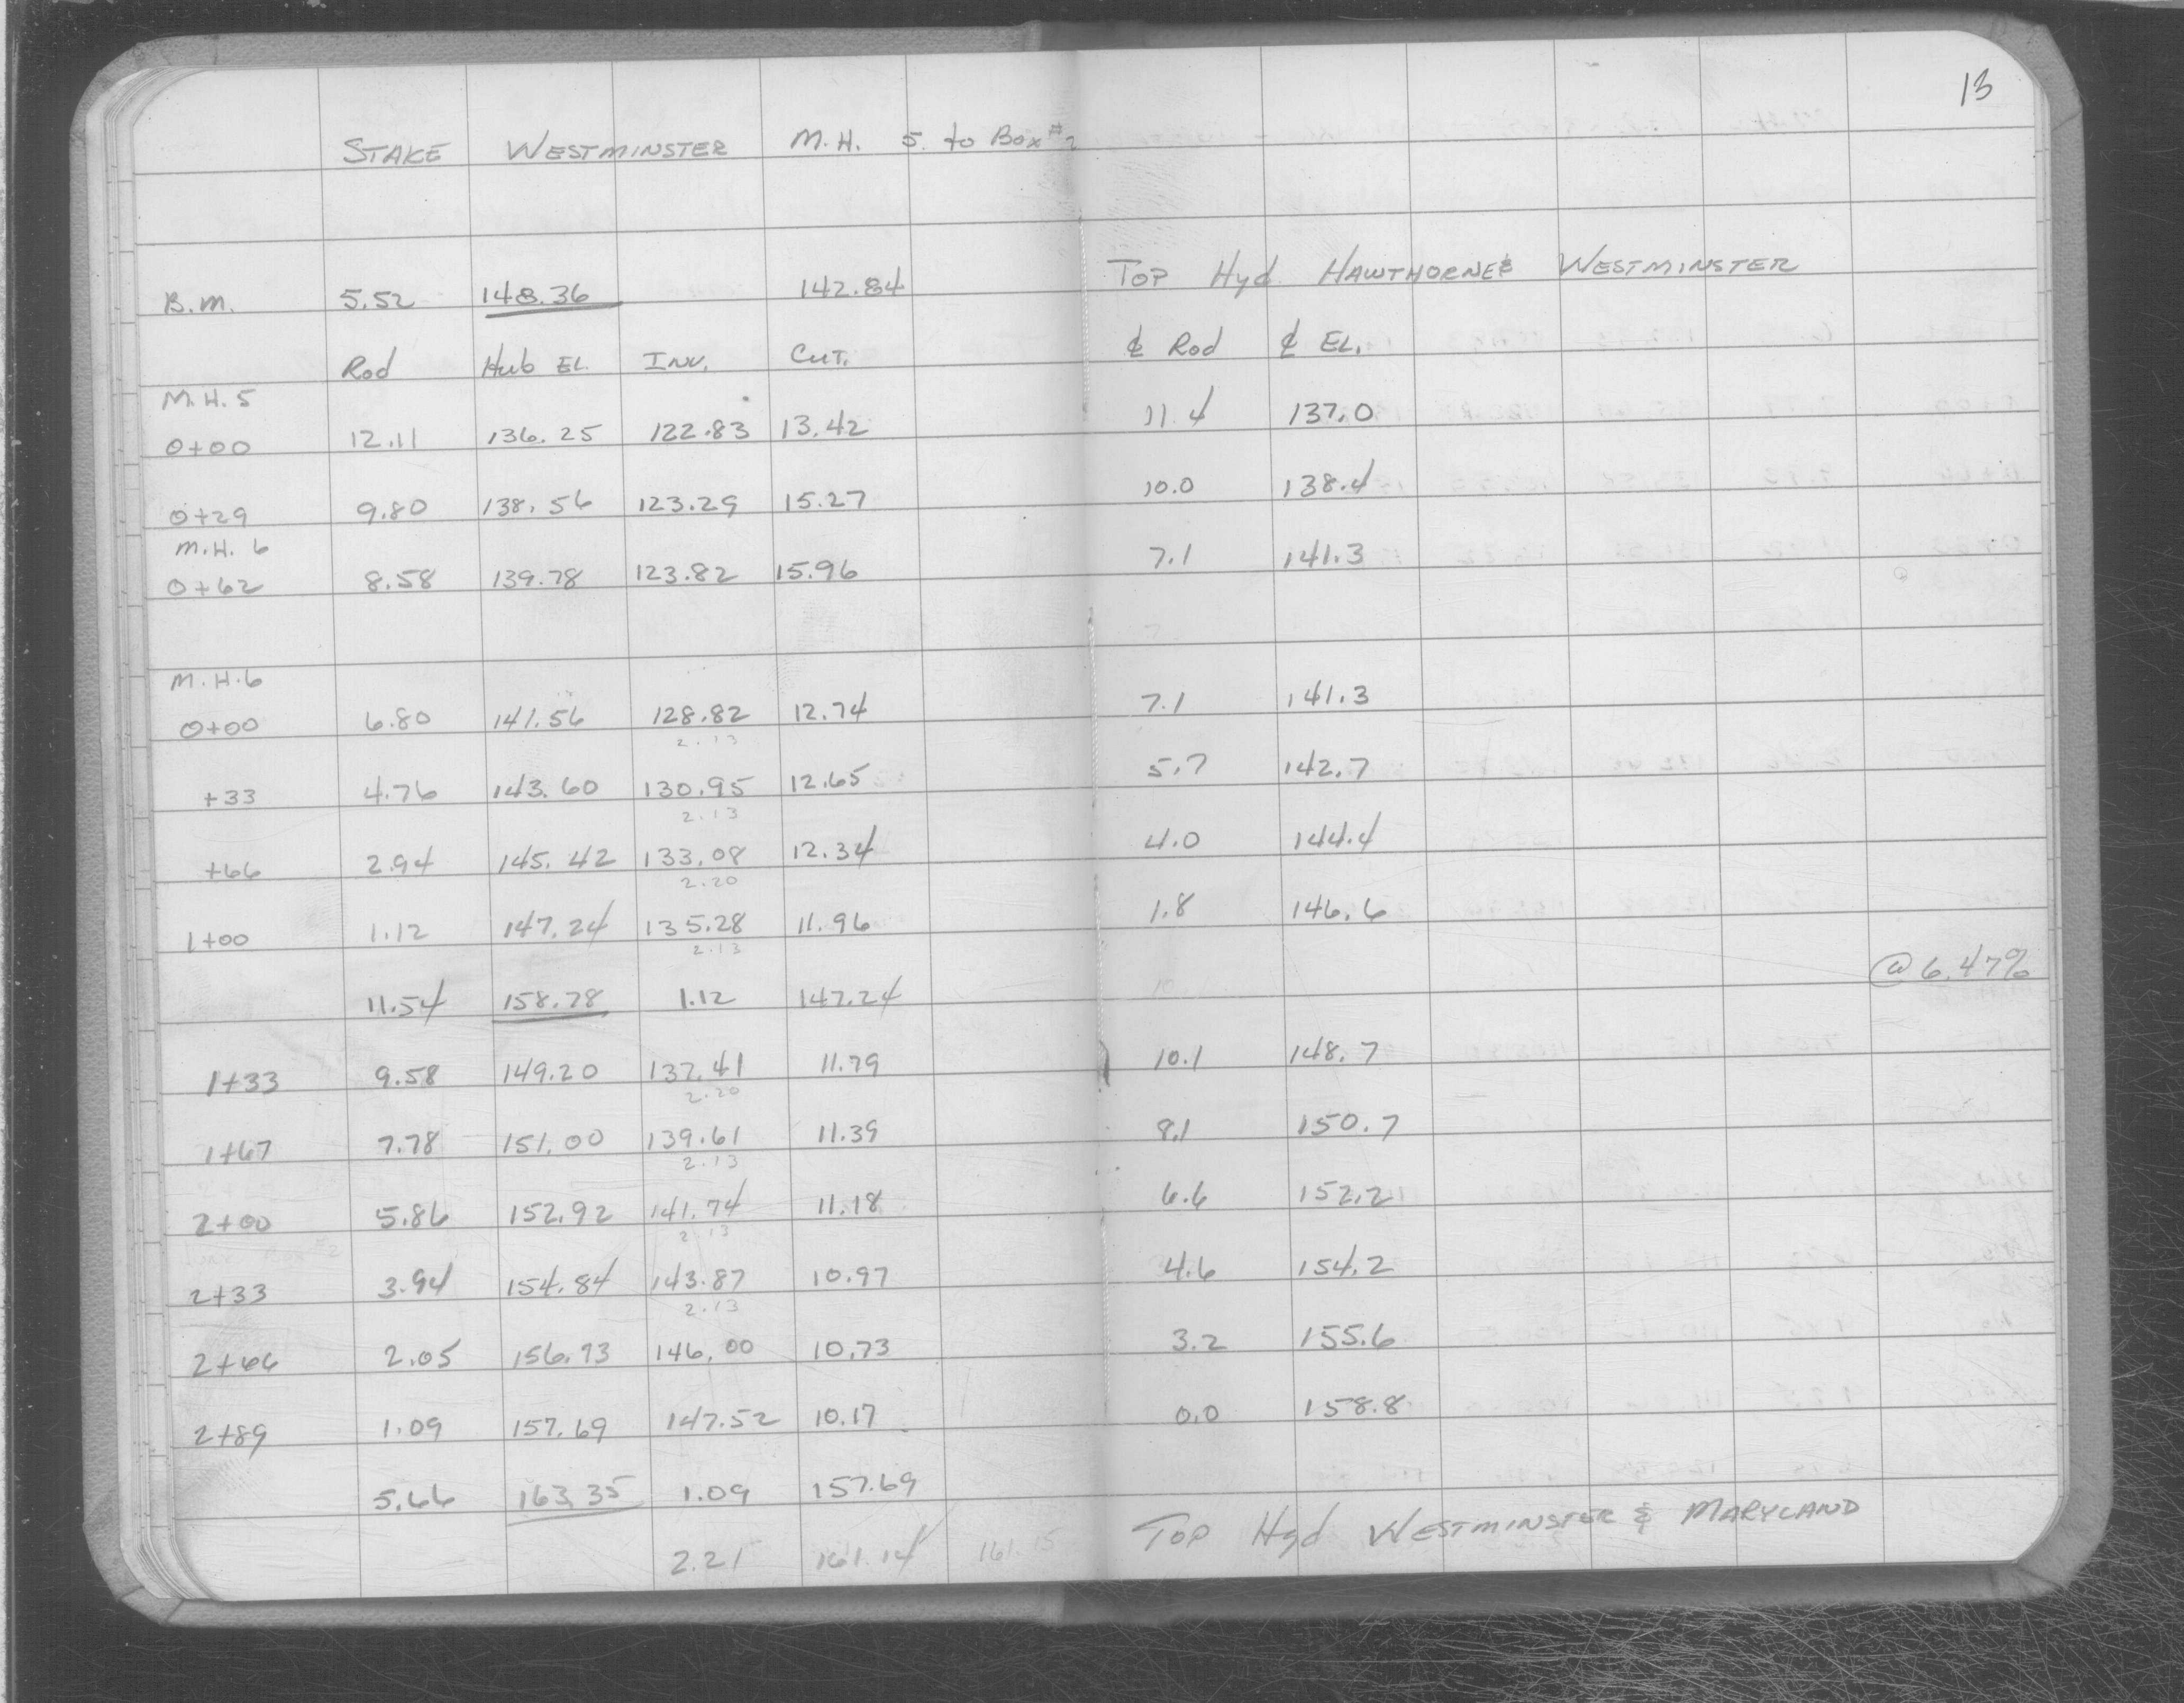 13
STAKE WESTMINSTER M.H. 5 to Box #2
B.M. 5.52 148.36 142.84 TOP Hyd. HAWTHORNE & WESTMINSTER
Rod Hub EL. INV. CUT. ℄ Rod ℄ EL.
M.H. 5
0+00 12.11 136.25 122.83 13.42 11.4 137.0
0+29 9.80 138.56 123.29 15.27 10.0 138.4
M.H. 6
0+62 8.58 139.78 123.82 15.96 7.1 141.3
M.H.6
0+00 6.80 141.56 128.82 12.74 7.1 141.3
2.13
+33 4.76 143.60 130.95 12.65 5.7 142.7
2.13
+66 2.94 145.42 133.08 12.34 4.0 144.4
2.20
1+00 1.12 147.24 135.28 11.96 1.8 146.6
2.13
@ 6.47%
11.54 158.78 1.12 147.24
1+33 9.58 149.20 137.41 11.79 10.1 148.7
2.20
1+67 7.78 151.00 139.61 11.39 8.1 150.7
2.13
2+00 5.86 152.92 141.74 11.18 6.6 152.2
2.13
2+33 3.94 154.84 143.87 10.97 4.6 154.2
2.13
2+66 2.05 156.73 146.00 10.73 3.2 155.6
2+89 1.09 157.69 147.52 10.17 0.0 158.8
5.66 163.35 1.09 157.69
2.21 161.14 161.15 TOP Hyd WESTMINSTER & MARYLAND